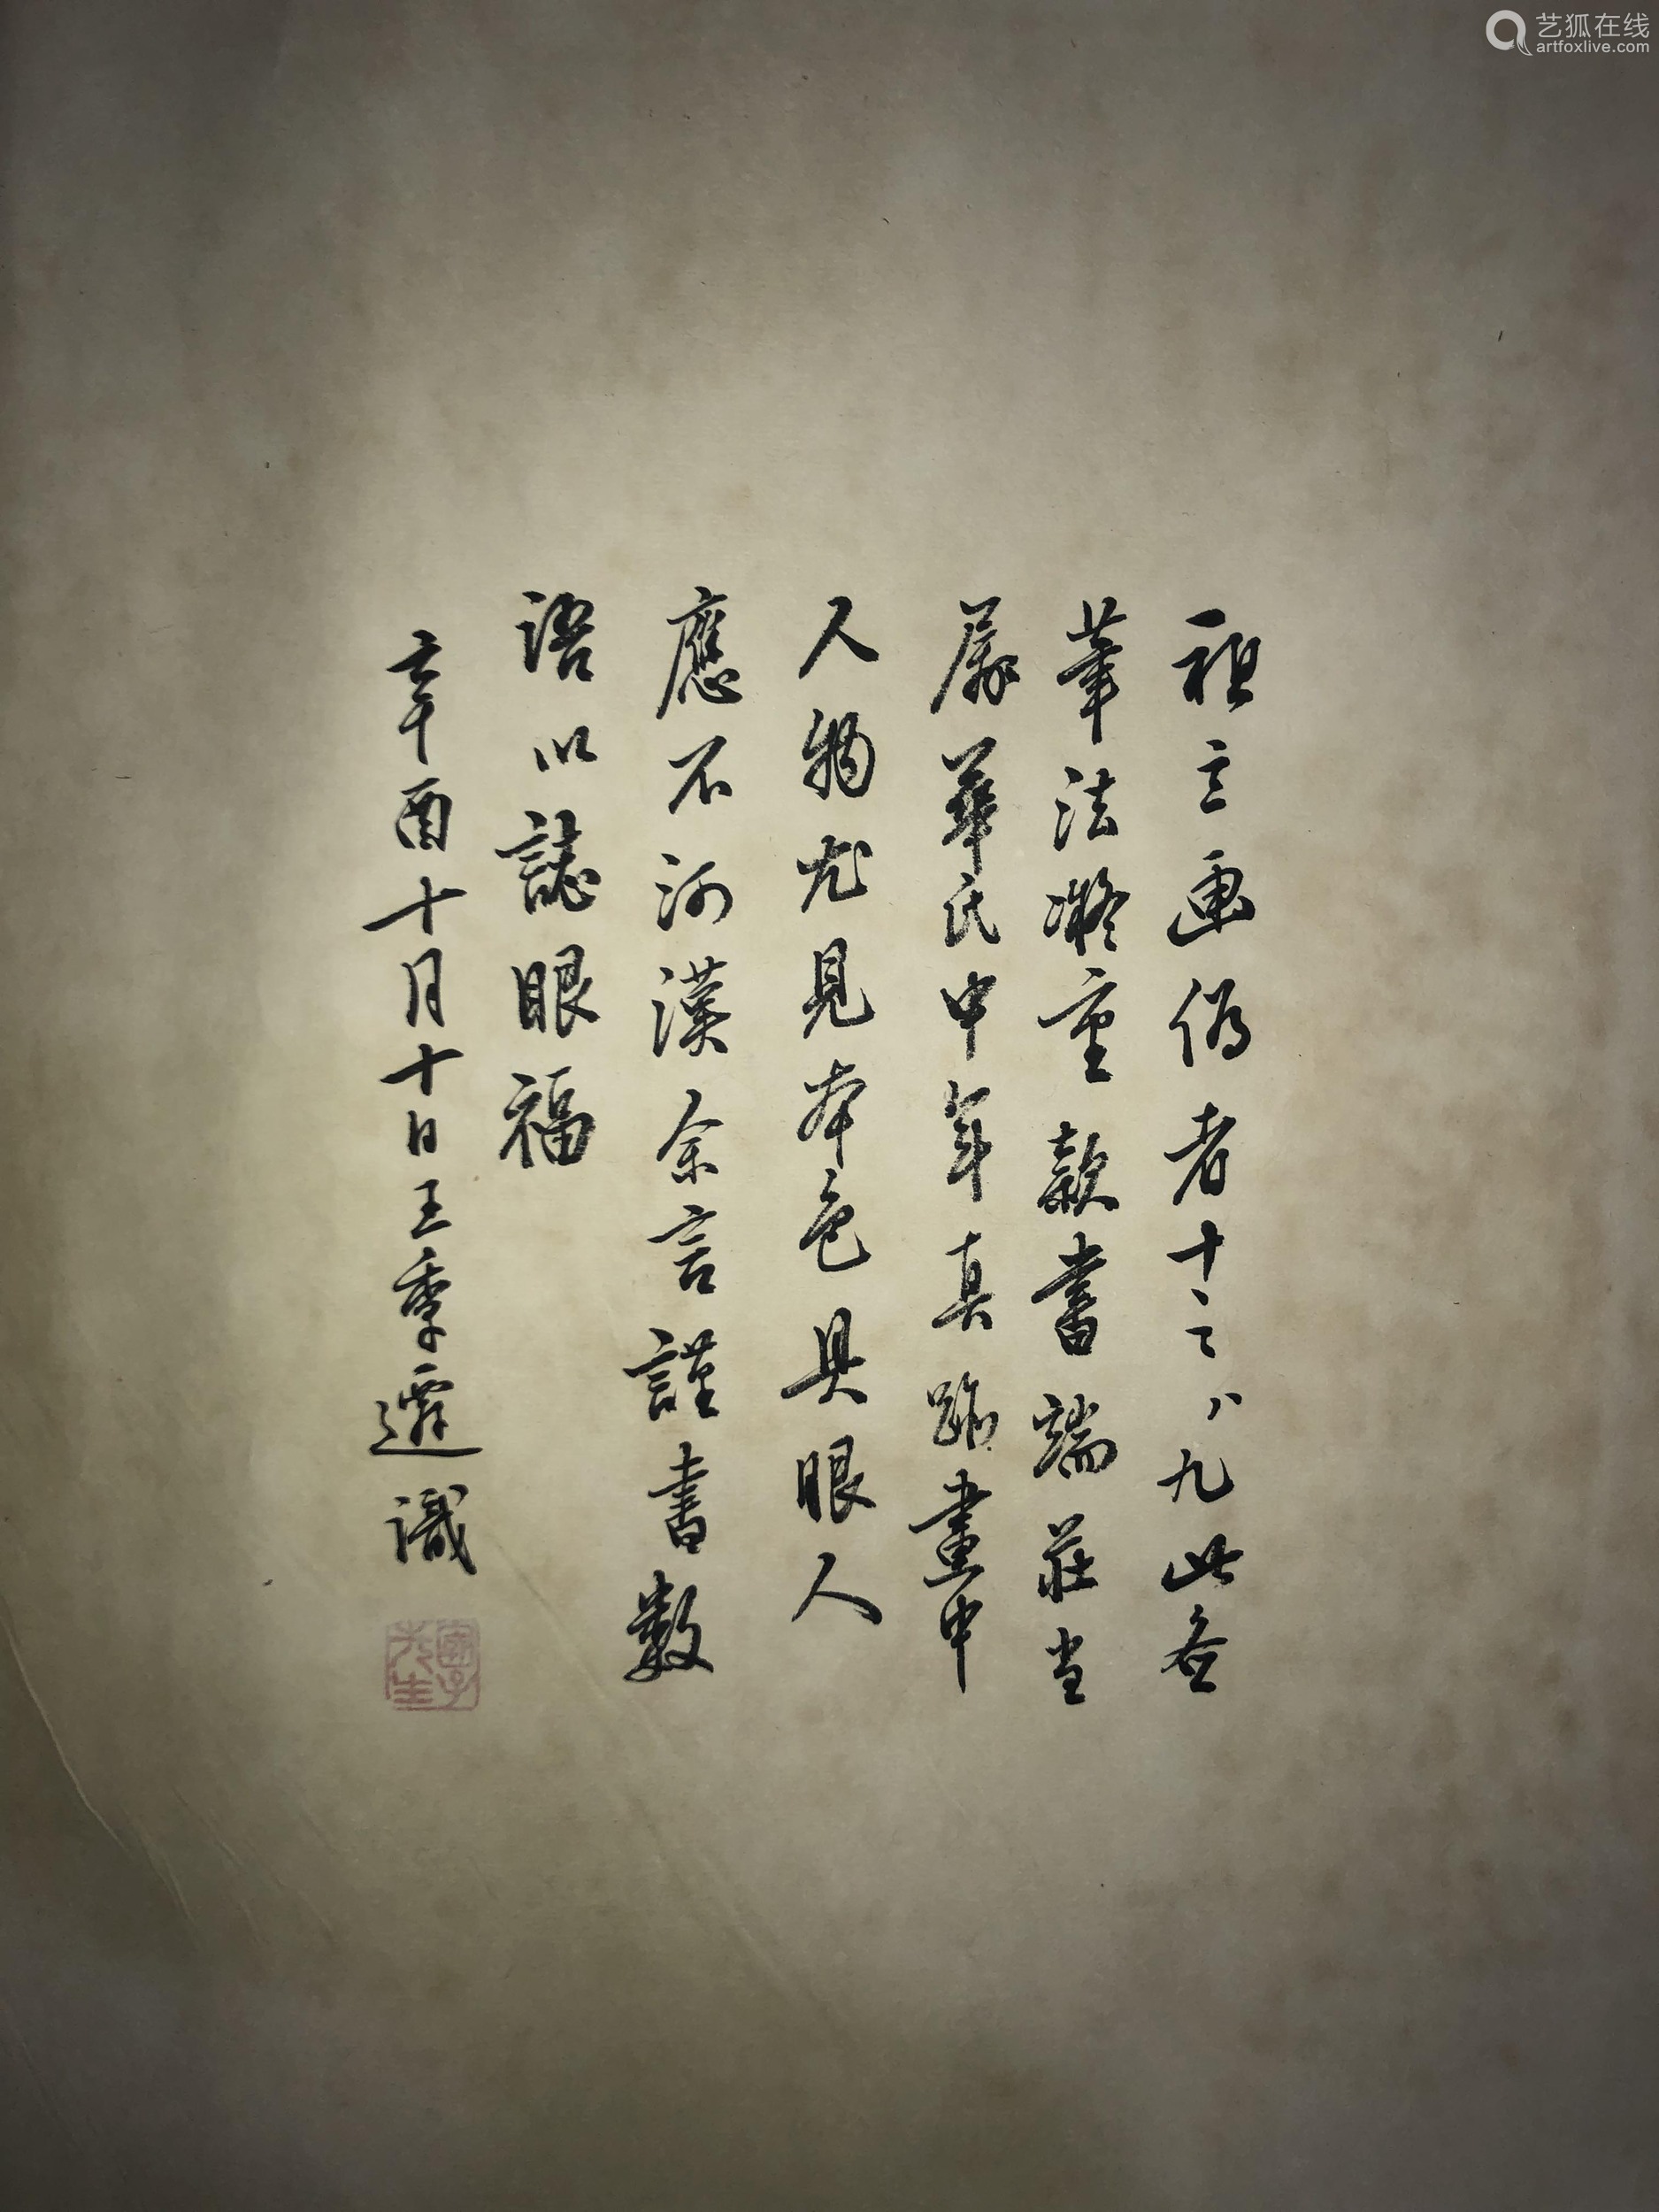 祖立画偽者十之八九此卷
筆法凝重款書端莊当
屬華氏中年真跡畫中
人物尤見本色具眼人
應不河漢余言謹書數
語以誌眼福
辛酉十月十日王季遷識
艺狐在线
artfoxlive.com